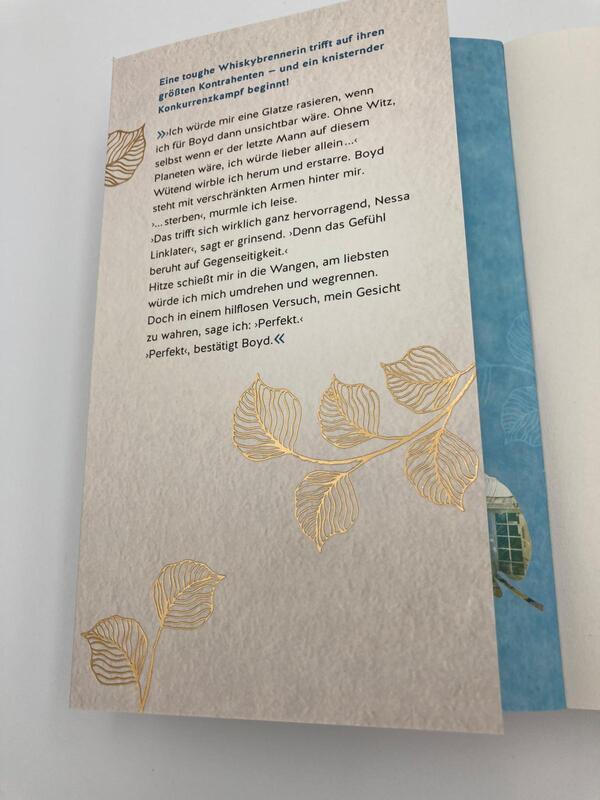 Eine toughe Whiskybrennerin trifft auf ihren
größten Kontrahenten – und ein knisternder
Konkurrenzkampf beginnt!
»›Ich würde mir eine Glatze rasieren, wenn
ich für Boyd dann unsichtbar wäre. Ohne Witz,
selbst wenn er der letzte Mann auf diesem
Planeten wäre, ich würde lieber allein ...‹
Wütend wirble ich herum und erstarre. Boyd
steht mit verschränkten Armen hinter mir.
›... sterben‹, murmle ich leise.
›Das trifft sich wirklich ganz hervorragend, Nessa
Linklater‹, sagt er grinsend. ›Denn das Gefühl
beruht auf Gegenseitigkeit.‹
Hitze schießt mir in die Wangen, am liebsten
würde ich mich umdrehen und wegrennen.
Doch in einem hilflosen Versuch, mein Gesicht
zu wahren, sage ich: ›Perfekt.‹
›Perfekt‹, bestätigt Boyd.«